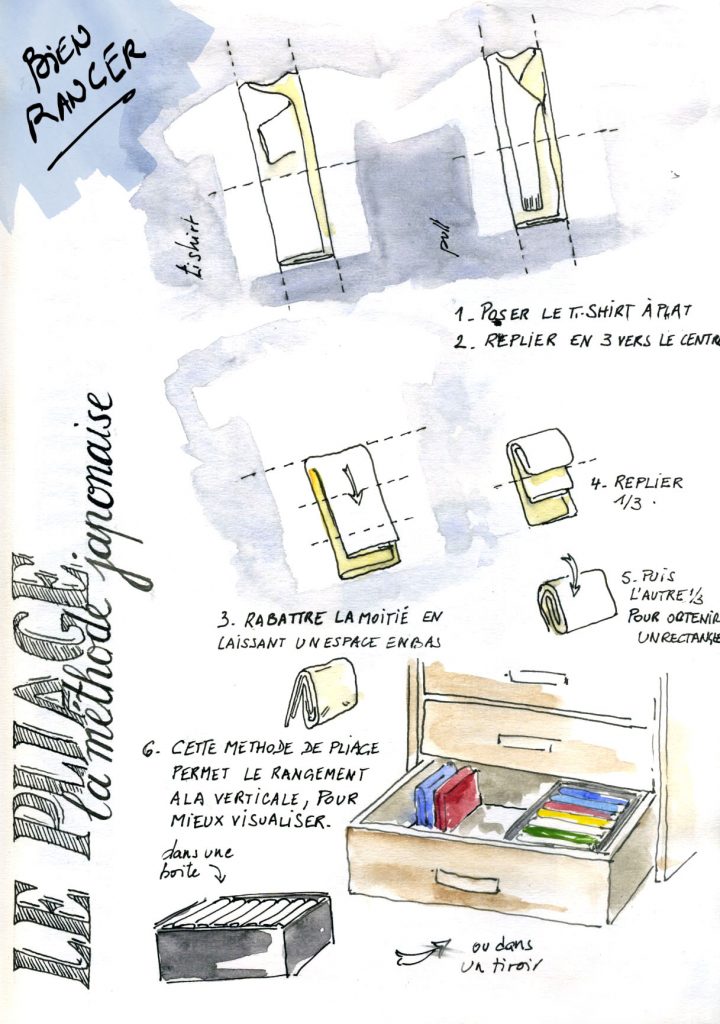 BIEN
RANGER
LE PLIAGE
la méthode japonaise
tishirt
pull
1_ POSER LE T.SHIRT À PLAT
2_ REPLIER EN 3 VERS LE CENTR
3. RABATTRE LA MOITIÉ EN
LAISSANT UN ESPACE EN BAS
4_ REPLIER
1/3.
5_ PUIS
L'AUTRE 1/3
POUR OBTENIR
UN RECTANGLE
6_ CETTE METHODE DE PLIAGE
PERMET LE RANGEMENT
A LA VERTICALE, POUR
MIEUX VISUALISER.
dans une
boite
ou dans
un tiroir